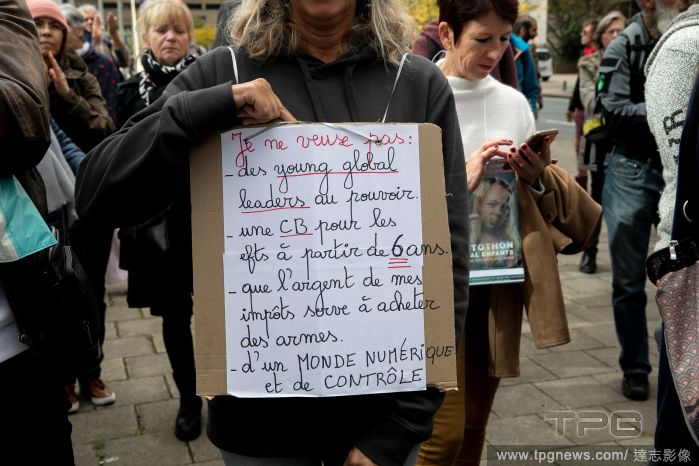 Je ne veuse pas:
- des young global
leaders au pouvoir.
- une CB pour les
efts à partir de 6 ans.
- que l'argent de mes
impôts serve à acheter
des armes.
- d'un MONDE NUMÉRIQUE
et de CONTRÔLE
TOTHON
AL ENFANTS
TPG
www.tpgnews.com/ 達志影像